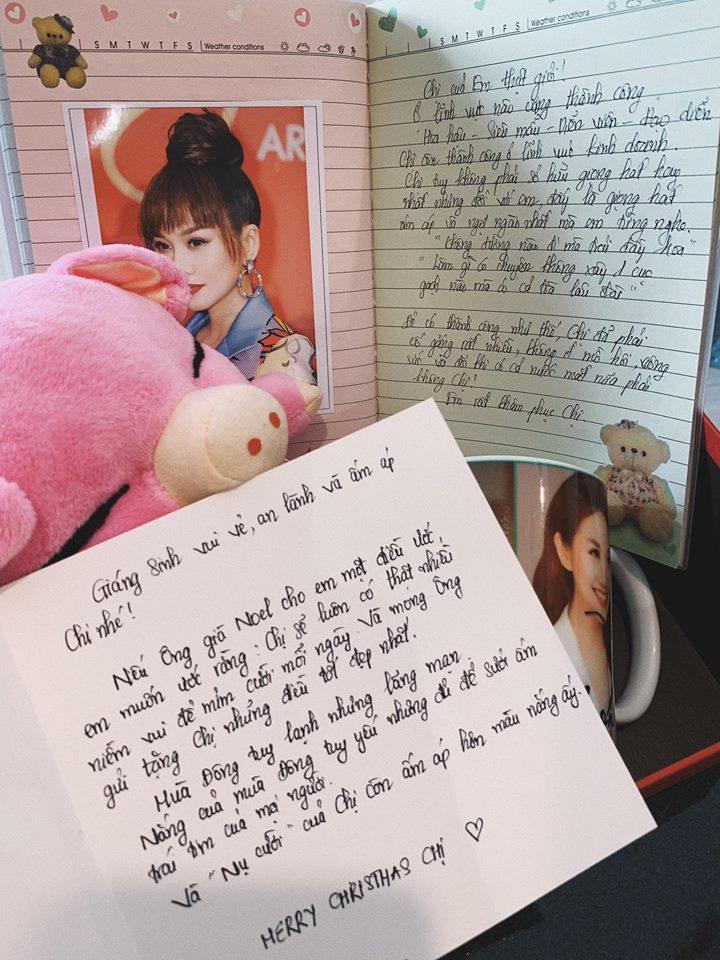 S M T W T F S Weather conditions
AR
S M T W T F S Weather conditions
Chị của Em thật giỏi!
Ở lĩnh vực nào cũng thành công
"Hoa hậu - Siêu mẫu - Diễn viên - Đạo diễn
Chị còn thành công ở lĩnh vực kinh doanh.
Chị tuy không phải sở hữu giọng hát hay
nhất nhưng đối với em, đây là giọng hát
ấm áp và ngọt ngào nhất mà em từng nghe.
"Chẳng đường nào đi mà trải đầy hoa"
"Làm gì có chuyện không xây 1 cục
gạch nào mà có cả tòa lâu đài"
Để có thành công như thế, Chị đã phải
cố gắng rất nhiều, không ít mồ hôi, công
sức và đôi khi có cả nước mắt nữa phải
không Chị!
Em rất khâm phục Chị.
Giáng Sinh vui vẻ, an lành và ấm áp
Chị nhé!
Nếu Ông già Noel cho em một điều ước,
em muốn ước rằng: Chị sẽ luôn có thật nhiều
niềm vui để mỉm cười mỗi ngày. Và mong Ông
gửi tặng Chị những điều tốt đẹp nhất.
Mùa Đông tuy lạnh nhưng lãng mạn.
Nắng của mùa Đông tuy yếu nhưng đủ để sưởi ấm
trái tim của mọi người.
Và "Nụ cười" của Chị còn ấm áp hơn màu nắng ấy.
MERRY CHRISTMAS CHỊ ♡